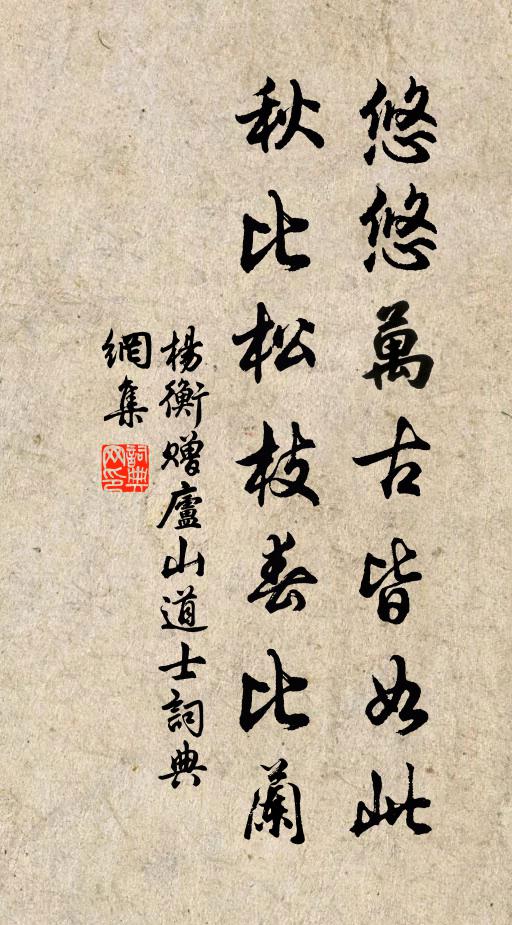 悠悠萬古皆如此
秋比松枝春比蘭
楊衡贈廬山道士詞典
網集
詞典網印